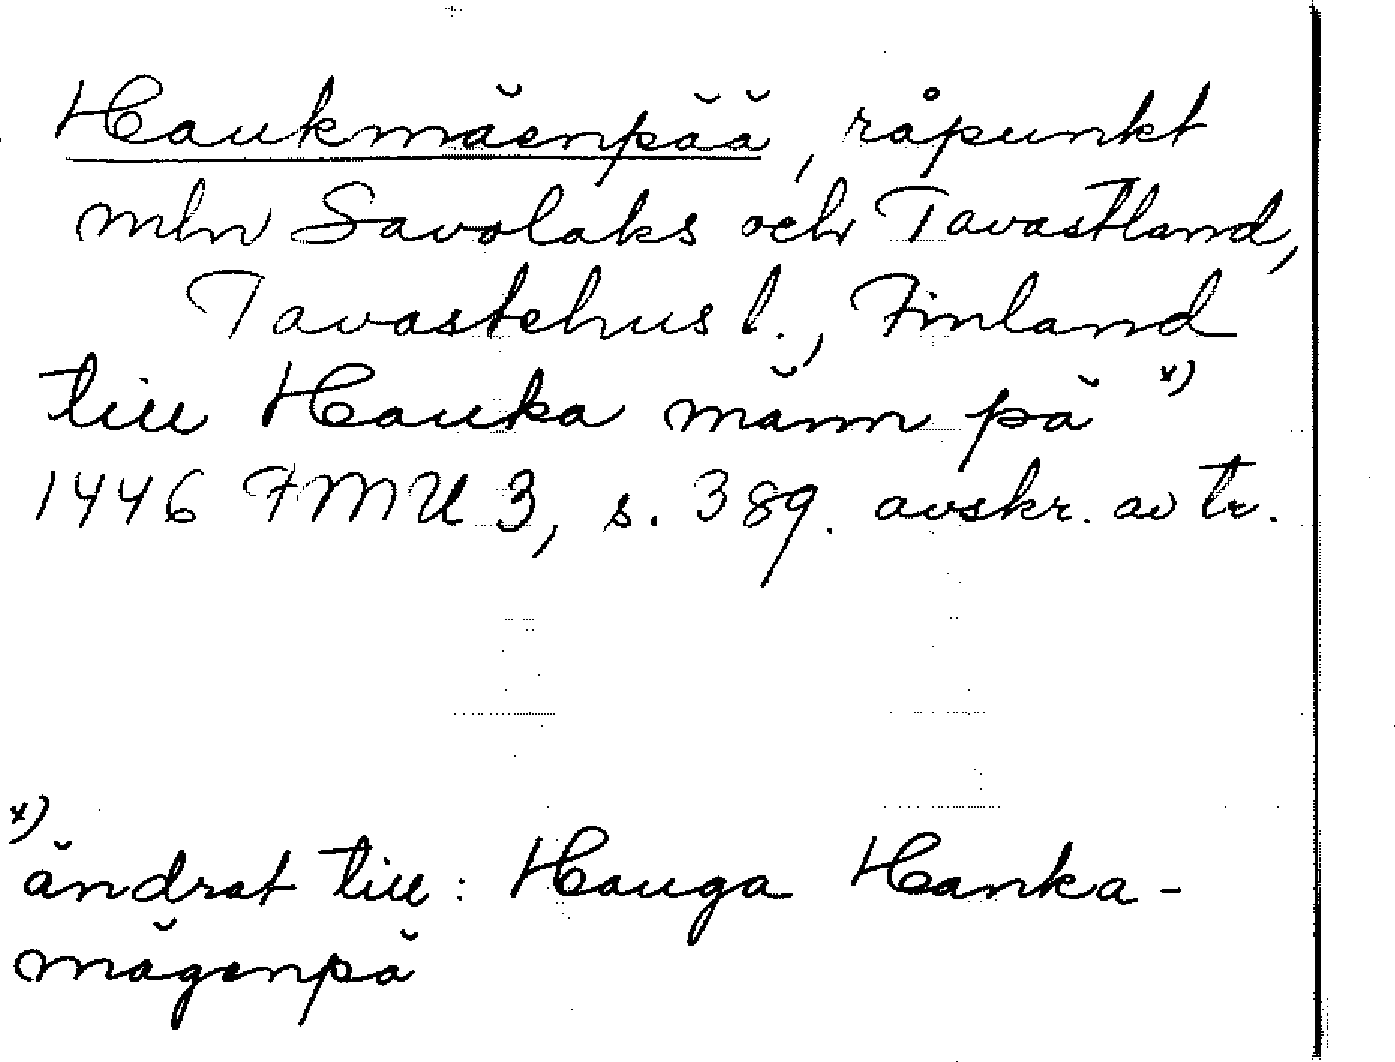 Haukmäenpää, råpunkt
mln Savolaks och Tavastland,
Tavastehus l., Finland
till Hauka männ pä x)
1446 FMU 3, s. 389. avskr. av tr.
x)
ändrat till: Hauga Hanka-
mägenpä